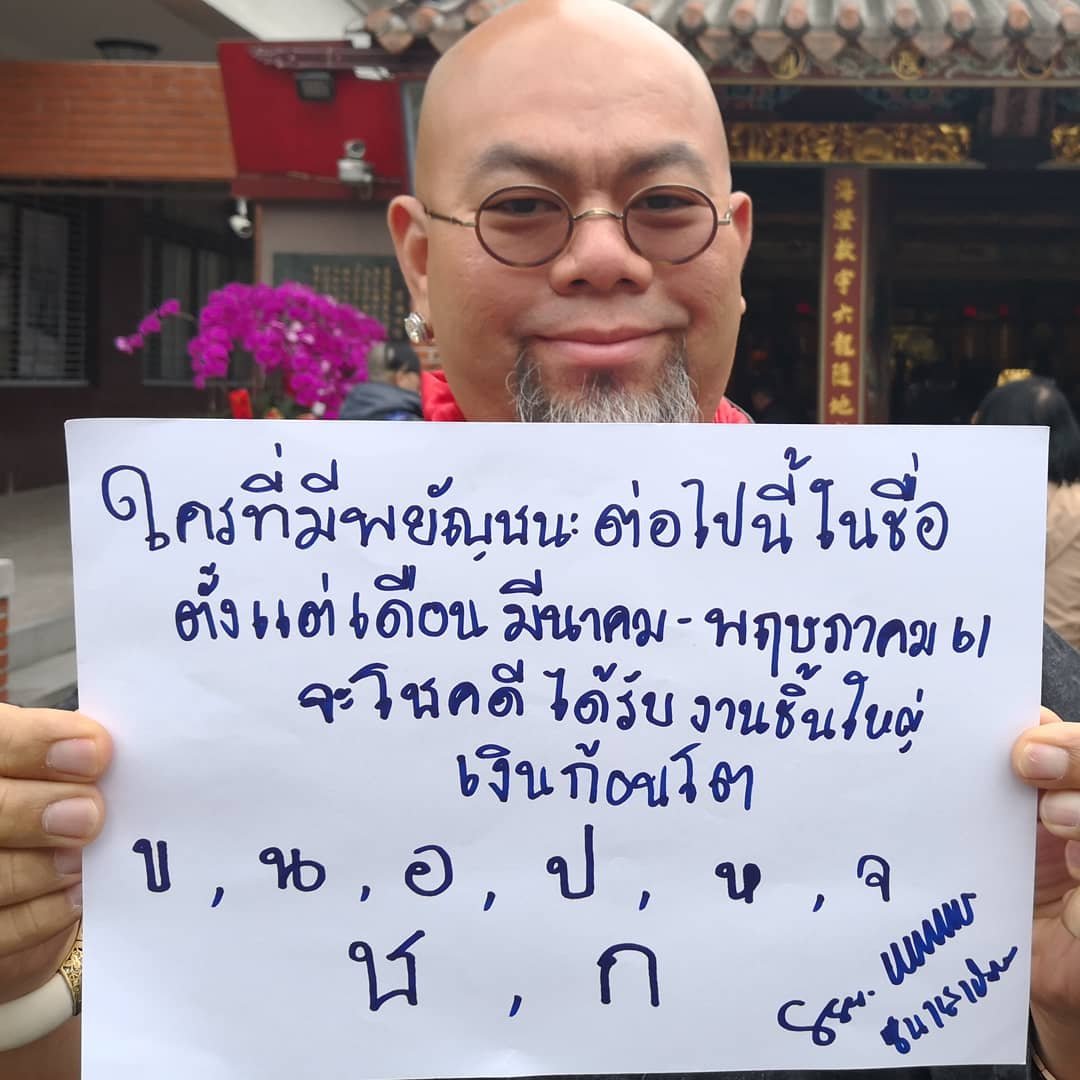 海澄教守六龍隨地
ใครที่มีพยัญชนะ ต่อไปนี้ ในชื่อ
ตั้งแต่เดือน มีนาคม - พฤษภาคม 61
จะโชคดี ได้รับ งานชิ้นใหญ่
เงินก้อนโต
ข , น , อ , ป , ห , จ
ช , ก